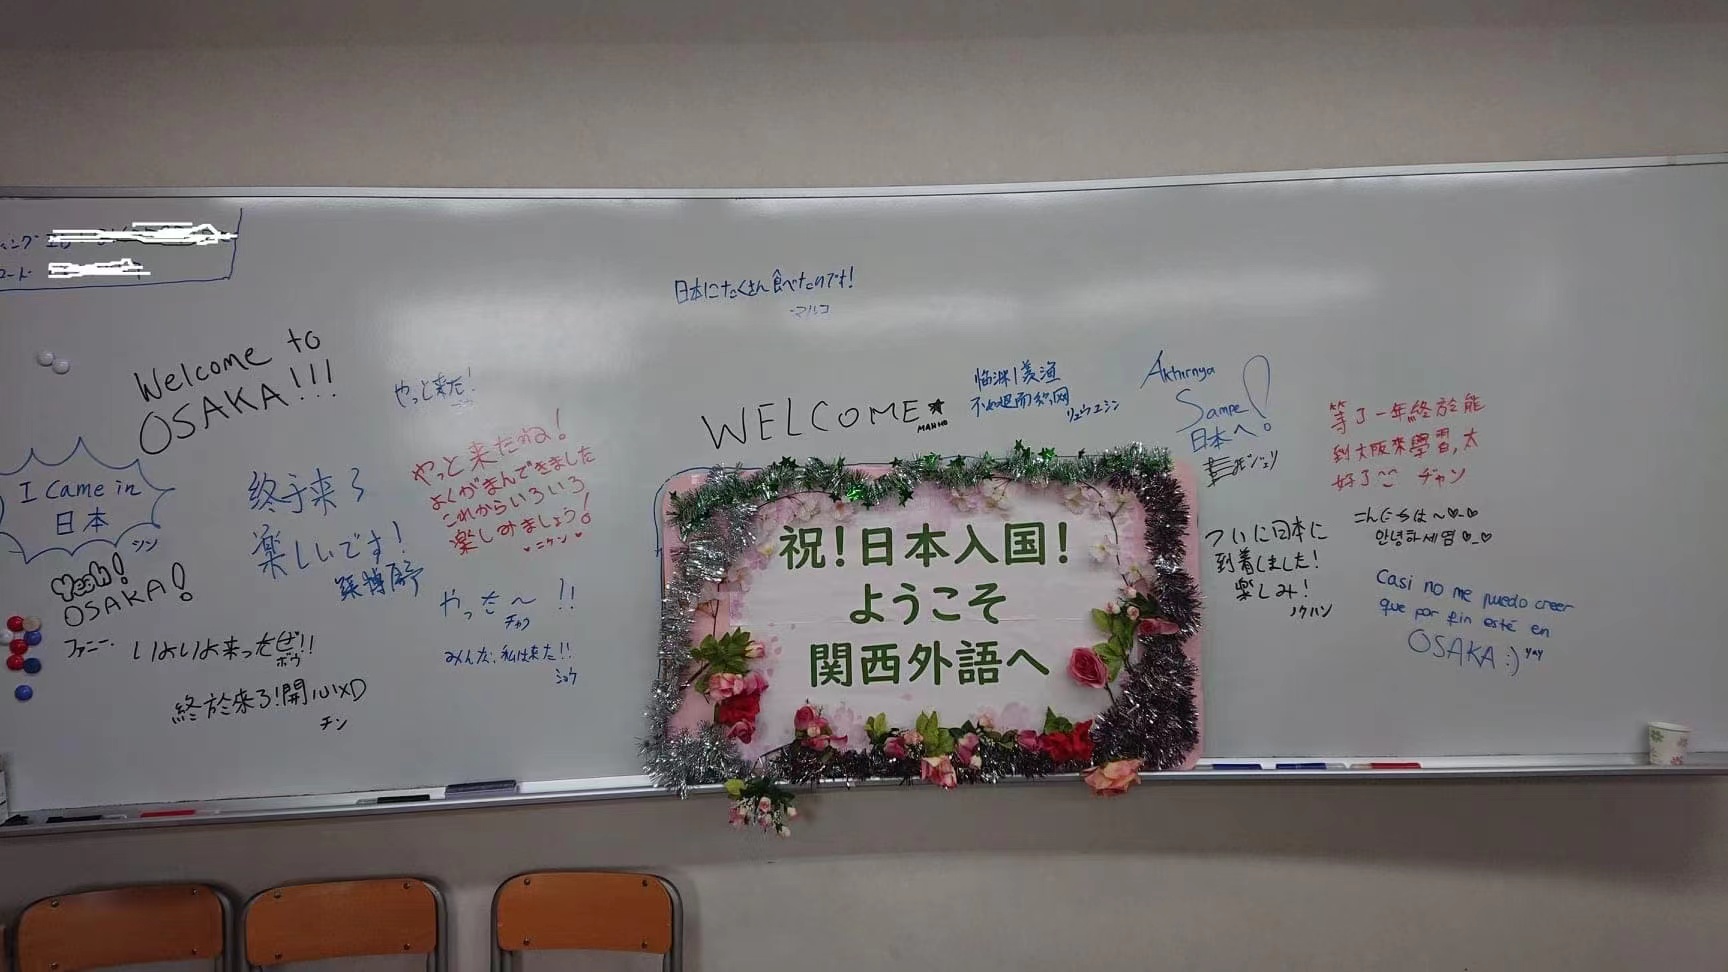 Welcome to
OSAKA!!!
I came in
日本
シン
Yeah!
OSAKA!
ファニー
いよいよ来ったぜ!!
ボウ
終於来了!開心XD
チン
终于来了
楽しいです!
やっと来た!
やっと来たね!
よくがまんできました
これからいろいろ
楽しみましょう!
やった〜!!
みんな、私は来た!!
ショウ
日本にたくさん食べたのです!
マルコ
WELCOME★
祝!日本入国!
ようこそ
関西外語へ
临渊羡渔
不如退而织网
リュウユシン
Akhirnya
Sampe!
日本へ。
ついに日本に
到着しました!
楽しみ!
等了一年終於能
到大阪來學習,太
好了 チャン
こんにちは〜
안녕하세염
Casi no me puedo creer
que por fin esté en
OSAKA :) yay